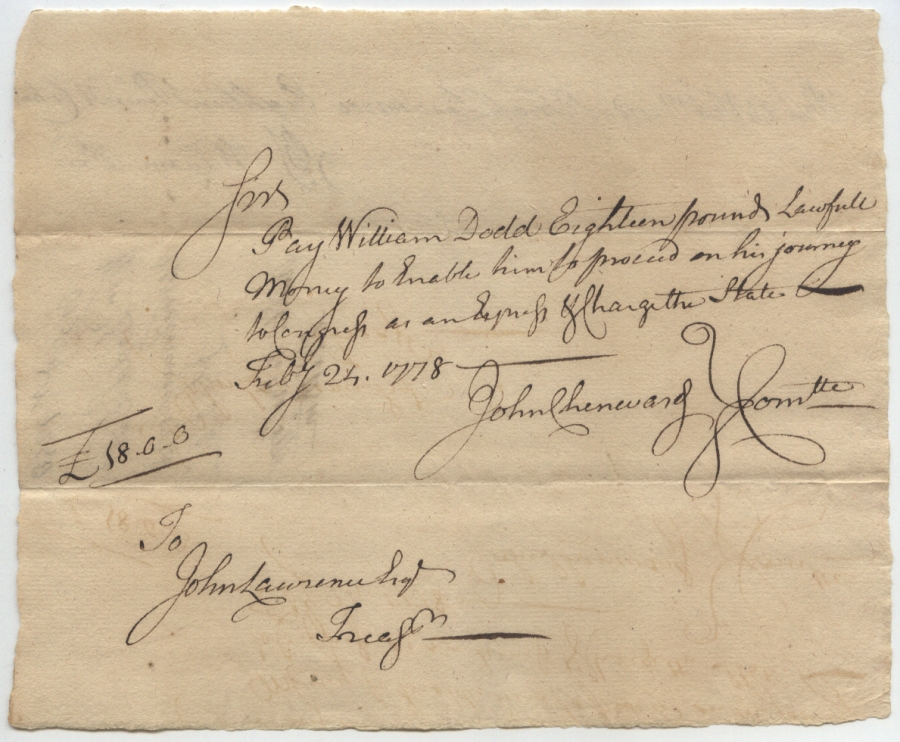 Sir
Pay William Dodd Eighteen pounds Lawfull
Money to Enable him to proceed on his journey
to Congress as an Express & Charge the State
Feby 24. 1778
John Chenward } Comtte
£18-0-0
To
John Lawrence Esqr
Treasr